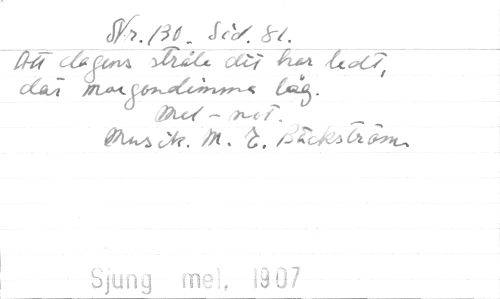 Nr. 130. Sid. 81.
Att dagens stråle dit har ledt,
där morgondimma låg.
Mel - not.
Musik. M. E. Bäckström
Sjung mel. 1907